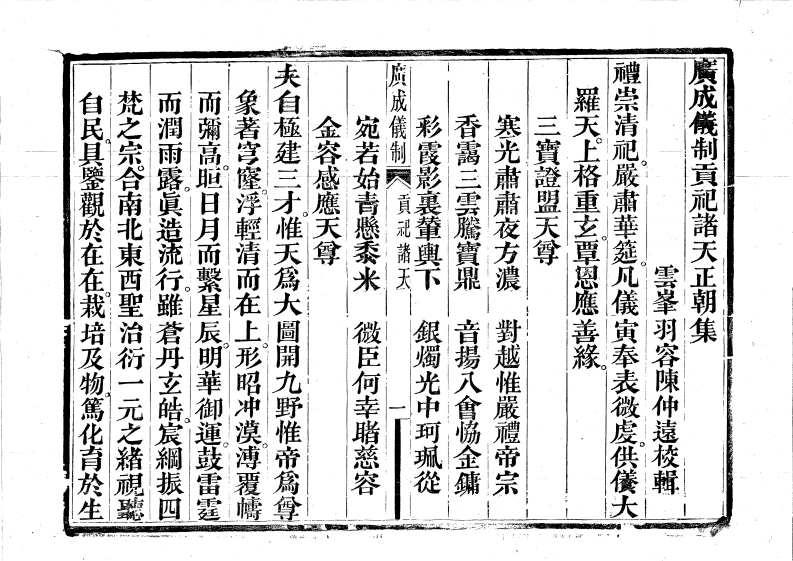 廣成儀制貢祀諸天正朝集
雲峯羽容陳仲遠校輯
禮崇清祀。嚴肅華筵。凡儀寅奉表微虔。供養大
羅天。上格重玄。覃恩應善緣。
三寶證盟天尊
寒光肅肅夜方濃　對越惟嚴禮帝宗
香靄三雲騰寶鼎　音揚八會恊金鏞
彩霞影裏輦輿下　銀燭光中珂珮從
廣成儀制　貢祀諸天　一
宛若始青懸黍米　微臣何幸睹慈容
金容感應天尊
夫自極建三才。惟天爲大圖開九野惟帝爲尊
象著穹窿。浮輕清而在上。形昭冲漠。溥覆幬
而彌高。垣日月而繫星辰。明華御運。鼓雷霆
而潤雨露。眞造流行。雖蒼丹玄皓。宸綱振四
梵之宗。合南北東西聖治衍一元之緒視聽
自民。具鑒觀於在在。栽培及物。篤化育於生